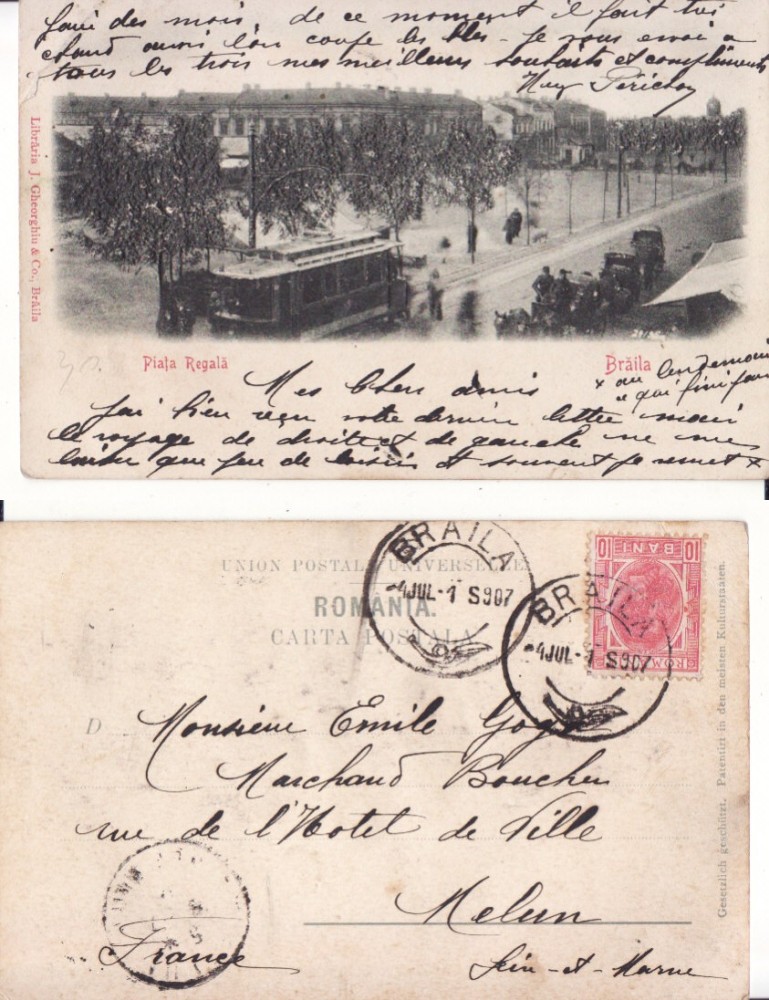 faire des mois, de ce moment il fait très
chaud aussi l'on coupe les blés - Je vous envoi a
tous les trois mes meilleurs souhaits et compliments
Librăria J. Gheorghiu & Co., Brăila
Piața Regală
Brăila
Mes chers amis
x au lendemain
ce qui fini
J'ai bien reçu votre dernière lettre mais
le voyage de droite et de gauche ne me
laisse que peu de loisirs et souvent je remet x
UNION POSTALE UNIVERSELLE.
ROMANIA.
CARTA POSTALA
BRAILA
-4JUL-1 S907
BRAILA
-4JUL-1 S907
10 BANI 10
ROM
D
Monsieur Emile
Marchand Boucher
rue de l'Hotel de Ville
Melun
France
Sein-et-Marne
Gesetzlich geschützt. Patentirt in den meisten Kulturstaaten.